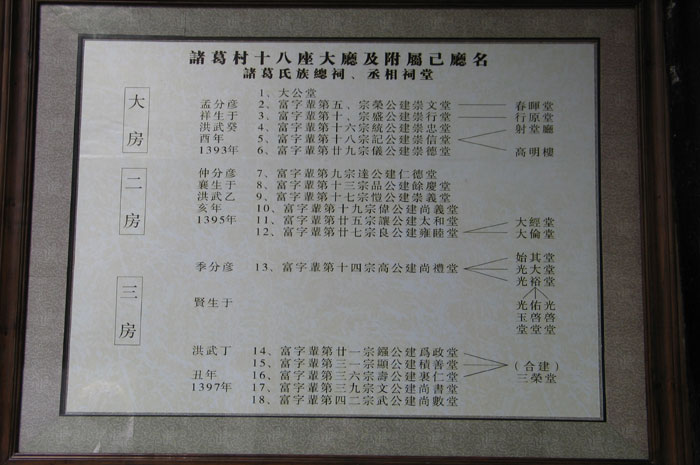 諸葛村十八座大廳及附屬己廳名
諸葛氏族總祠、丞相祠堂
大房
孟分彥
祥生于
洪武癸
酉年
1393年
1、大公堂
2、富字輩第五、宗榮公建崇文堂 春暉堂
3、富字輩第十、宗盛公建崇行堂 行原堂
4、富字輩第十六宗統公建崇忠堂 射堂廳
5、富字輩第十八宗記公建崇信堂
6、富字輩第廿九宗儀公建崇德堂 高明樓
二房
仲分彥
襄生于
洪武乙
亥年
1395年
7、富字輩第九宗達公建仁德堂
8、富字輩第十三宗品公建餘慶堂
9、富字輩第十七宗愷公建崇義堂
10、富字輩第十九宗偉公建尚義堂
11、富字輩第廿五宗讓公建太和堂 大經堂
12、富字輩第廿七宗良公建雍睦堂 大倫堂
三房
季分彥
賢生于
洪武丁
丑年
1397年
13、富字輩第十四宗高公建尚禮堂
始其堂
光大堂
光裕堂
光玉堂
佑啓堂
光啓堂
14、富字輩第廿一宗鏹公建爲政堂
15、富字輩第三一宗顯公建積善堂 (合建)
16、富字輩第三六宗壽公建裏仁堂 三榮堂
17、富字輩第三九宗文公建尚書堂
18、富字輩第四二宗武公建尚敷堂